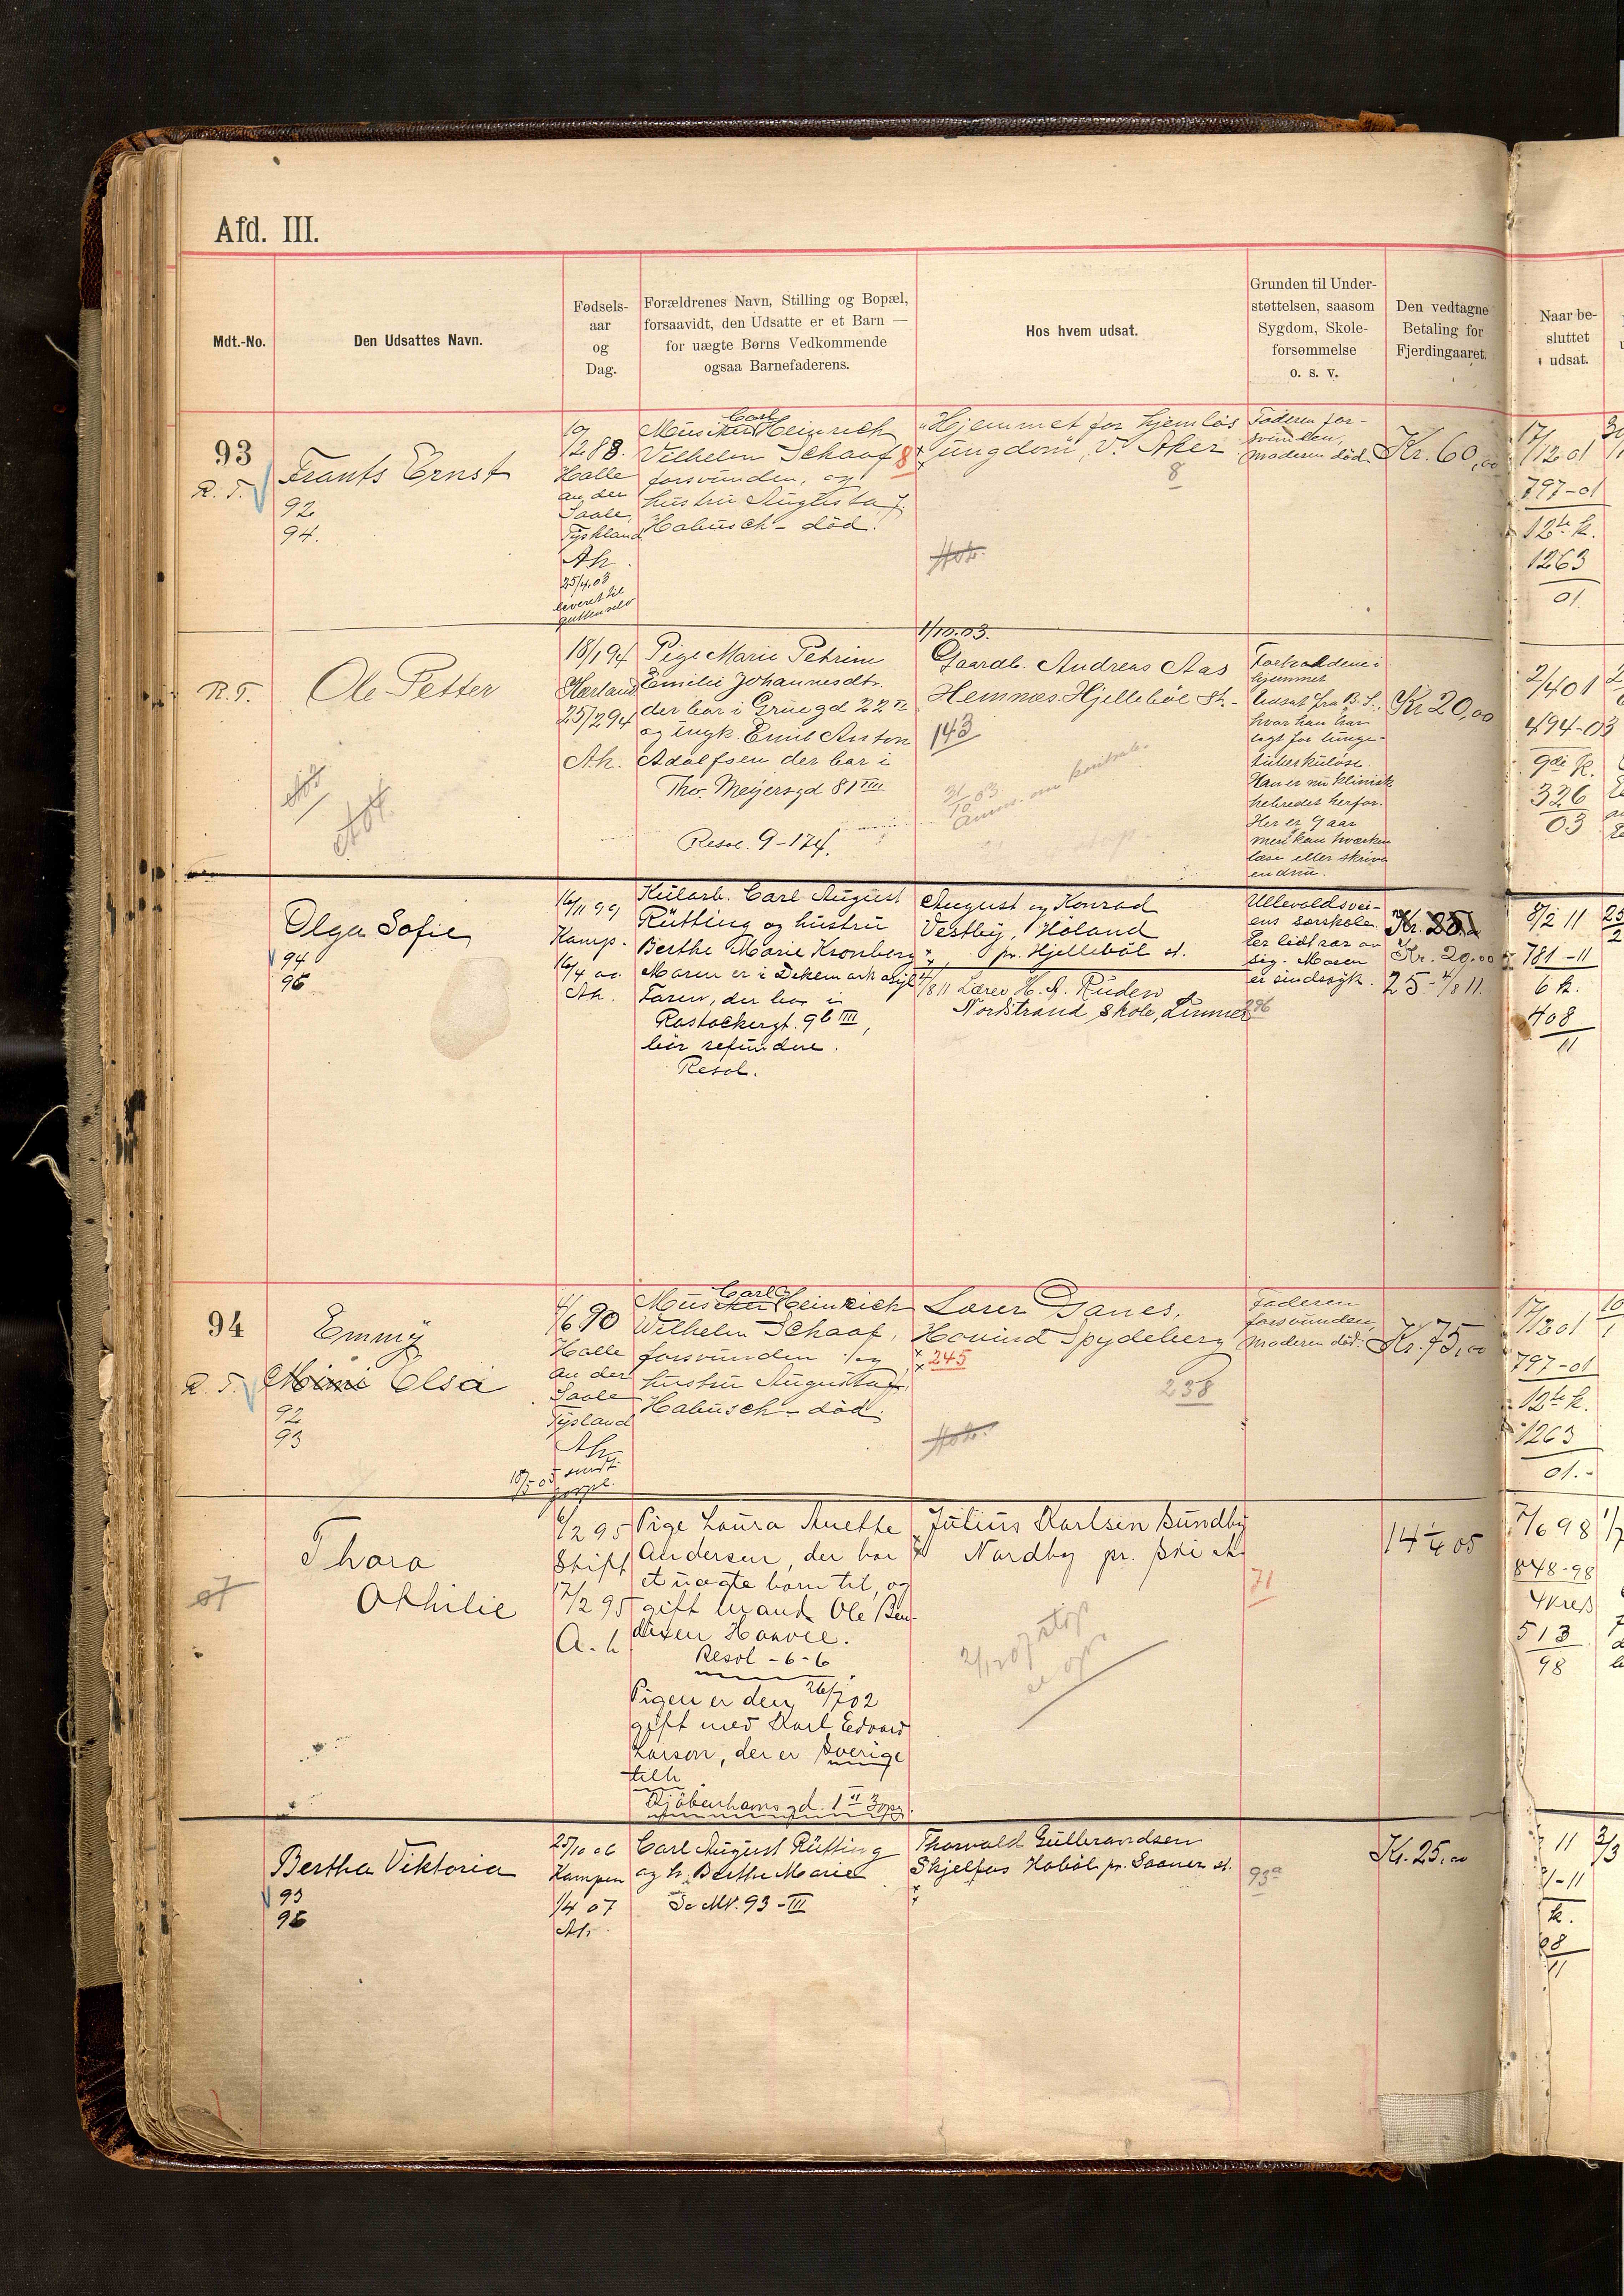 Afd. III.
Mdt.-No.
Den Udsattes Navn.
Fødsels-
aar
og
Dag.
Forældrenes Navn, Stilling og Bopæl,
forsaavidt, den Udsatte er et Barn —
for uægte Børns Vedkommende
ogsaa Barnefaderens.
Hos hvem udsat.
Grunden til Under-
støttelsen, saasom
Sygdom, Skole-
forsømmelse
o. s. v.
Den vedtagne
Betaling for
Fjerdingaaret.
Naar be-
sluttet
udsat.
93
R. T.
Frants Ernst
92
94.
1288.
Halle
an der
Saale,
Tyskland
Ah.
25/4.03
leveret til
Carl
Musiker Heinrich
Vilhelm Schaaf
forsvunden, og
hustru Augusta f.
Habusch - död.
8
"Hjemmet for hjemløs
Ungdom", V. Aker
8
Faderen for-
svunden,
moderen död.
Kr. 60,00
17/12 01
797-01
12te k.
1263
01.
R. T.
Ole Petter
18/1 94
Hærland
25/2 94
Ah.
Pige Marie Petrine
Emilie Johannesdtr.
der bor i Gruegd 22 II
og ungk. Emil Anton
Adolfsen der bor i
Thv. Meyersgd 81 III
Resol. 9-174.
1/10.03.
Gaardb. Andreas Aas
Hemnæs. Hjellebøl St.
143
31/10 03
Anm. om kontrak.
Forholdene i
hjemmet
Udsat fra B. S.,
hvor han har
lagt for lunge-
tuberkulose.
Han er nu klinisk
helbredet herfor.
Her er 9 aar
men kan hverken
læse eller skrive
endnu.
Kr 20,00
2/4 01
494-03
9de k.
326
03
Olga Sofie
94
96
16/11 99
Kamp.
16/4 00.
Ah.
Kularb. Carl August
Rütting og hustru
Berthe Marie Kronberg
Moren er i Dikemark asyl
Faren, der bor i
Rostockergt. 9b III,
bør refundere.
Resol.
August og Konrad
Vestby, Höland
pr. Hjellebøl st.
4/8 11 Lærer H. A. Ruden
Nordstrand skole, Rimmer
296
Ullevoldsvei-
ens særskole.
Ler lidt rar av
sig. Moren
er sindssyk.
Kr. 25,00
Kr. 20.00
25 - 4/8 11.
8/2 11
781-11
6 k.
408
11
94
R. T.
Emmy
Mimi Elsa
92
93
4/6 90
Halle
an der
Saale
Tysland
Ah
Carl
Musiker Heinrich
Wilhelm Schaaf,
forsvunden og
hustru Augusta f.
Habusch - död.
Lærer Danes,
Hovind Spydeberg
245
238
Faderen
forsvunden,
moderen död.
Kr. 75,00
17/12 01
797-01
12te k.
1263
01.-
Thora
Othilie
6/2 95
Stift
17/2 95
A. h
Pige Laura Anette
Andersen, der har
et uægte barn til, og
gift mand Ole Ben-
dixen Hanvee.
Resol - 6-6
Pigen er den 26/7 02
gift med Karl Edvard
Larson, der er Sverige
tilh
Kjöbenhavnsgd. 1 II 3opg.
Julius Karlsen Sundby
Nordby pr. Ski st.
71
14 1/4 05
7/6 98
848-98
4 kres
513
98
Bertha Viktoria
93
96
25/10 06
Kampen
1/4 07
Ah.
Carl August Rütting
og h. Berthe Marie
Se Mt. 93 - III
Thorvald Gulbrandsen
Skjelfos Hobøl pr. Sooner st.
93a
Kr. 25.00